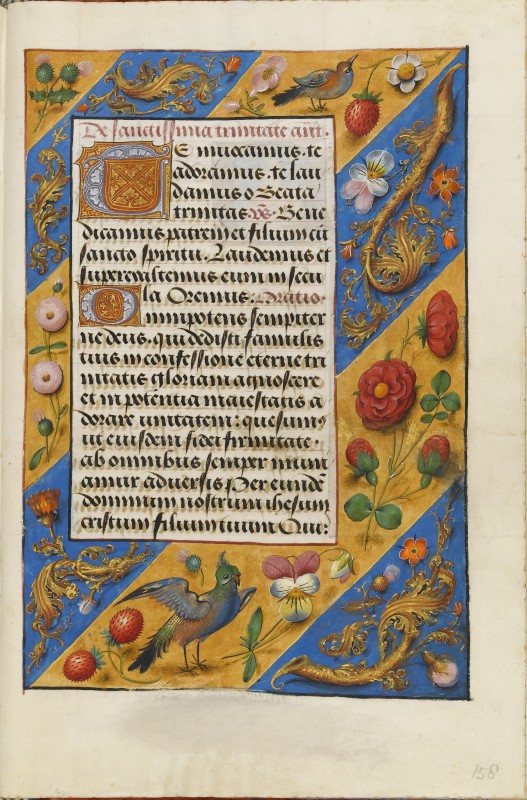 De sanctissima trinitate ant.
Te inuocamus. te
adoramus. te lau
damus o Beata
trinitas. vs. Bene
dicamus patrem et filium cū
sancto spiritu. Laudemus et
superexaltemus eum in secu
la Oremus. Oratio.
Omnipotens sempiter
ne deus. qui dedisti famulis
tuis in confessione eterne tri
nitatis gloriam agnoscere
et in potentia maiestatis a
dorare unitatem: quesumꝰ
ut eiusdem fidei firmitate.
ab omnibus semper muni
amur aduersis Per eundē
dominum nostrum ihesum
cristum filium tuum Qui:
158